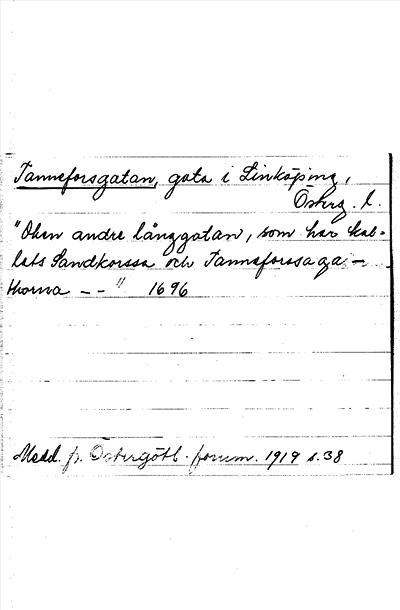 Tanneforsgatan, gata i Linköping,
Österg. l.
"Then andre långgatan, som har kal-
lats Sandkorssa och Tanneforssaga-
thorna - - " 1696
Medd. fr. Östergötl. fornm. 1919 s. 38